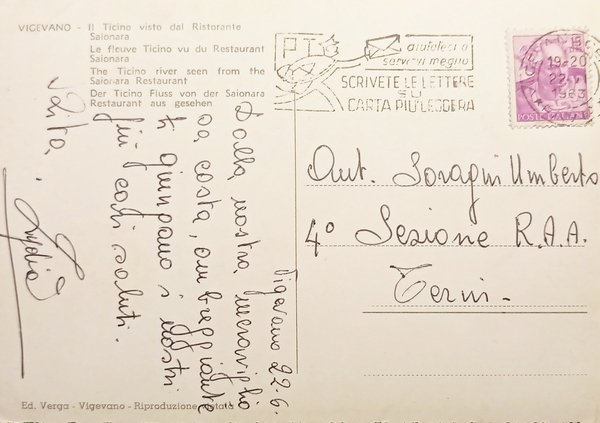 VIGEVANO - Il Ticino visto dal Ristorante
Saionara
Le fleuve Ticino vu du Restaurant
Saionara
The Ticino river seen from the
Saionara Restaurant
Der Ticino Fluss von der Saionara
Restaurant aus gesehen
PT
aiutateci a
servirvi meglio
SCRIVETE LE LETTERE
SU
CARTA PIU' LEGGERA
19-20
22
1963
POSTE ITALIANE
Vigevano 22.6.
Dalla nostra meraviglio
sa costa, ombreggiante
ti giungano i nostri
più cari saluti.
Lydia
Aut. Soragni Umberto
4° Sezione R.A.A.
Terni-
Ed. Verga - Vigevano - Riproduzione vietata